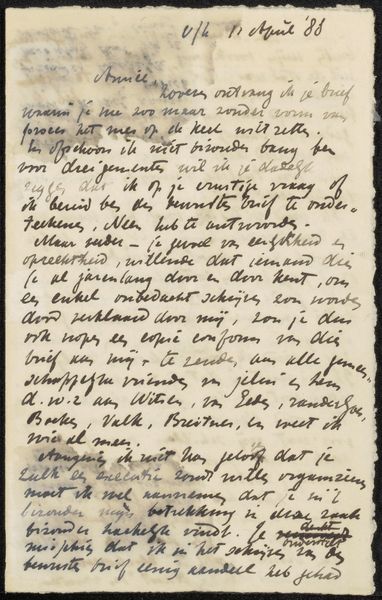 11 April '88
Amice,
Zooeven ontvang ik je brief
waarin je me zoo maar zonder vorm van
proces het mes op de keel wilt zetten.
En ofschoon ik niet bizonder bang ben
voor dreigementen wil ik je dadelijk
zeggen dat ik op je ernstige vraag of
ik bereid ben den bewusten brief te onder-
teekenen, Neen heb te antwoorden.
Maar verder – je gevoel van eerlijkheid en
oprechtheid, willende dat iemand dien
je al jarenlang door en door kent, om
een enkel onbedacht schrijven zou worden
dood verklaard door mij, zou je dus
ook nopen een copie conform van die
brief aan mij – te zenden aan alle gemeen-
schappelijke vrienden van jelui en hem
d.w.z aan Witsen, van Eeden, van der Goes,
Boeken, Valk, Breitner, en weet ik
wie al meer.
Aangezien ik niet kan gelooven dat je
zulk een executie zoudt willen organiseeren
moet ik wel aannemen dat je mijn
bizonder mijn betrekking in deze zaak
bizonder hachelijk vindt. Je dacht
misschien dat ik in het schrijven van den
bewusten brief eenig aandeel heb gehad